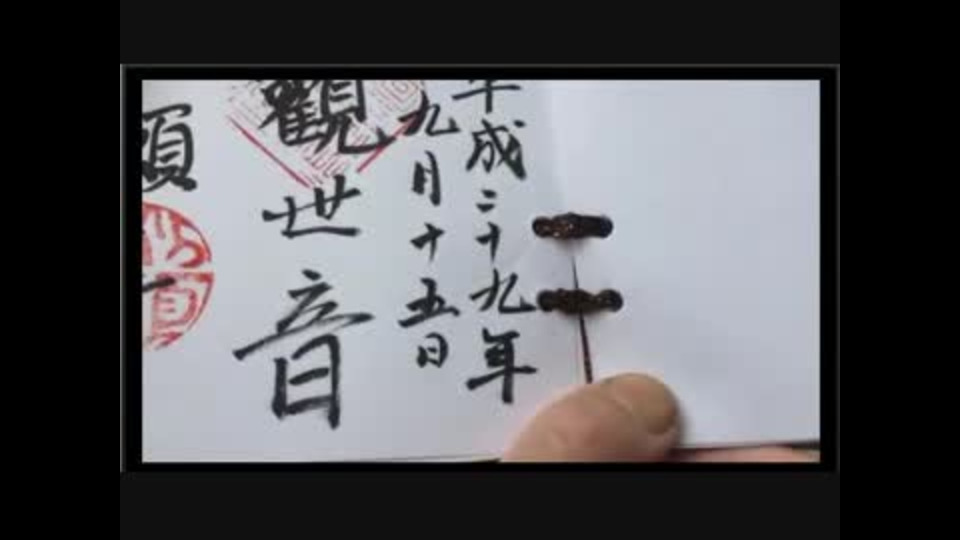 平成二十九年
九月十五日
觀世音